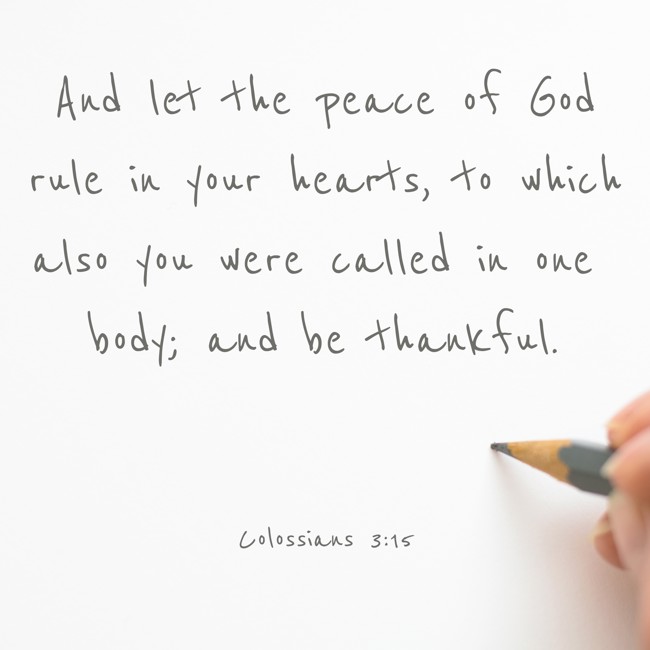 And let the peace of God
rule in your hearts, to which
also you were called in one
body; and be thankful.
Colossians 3:15